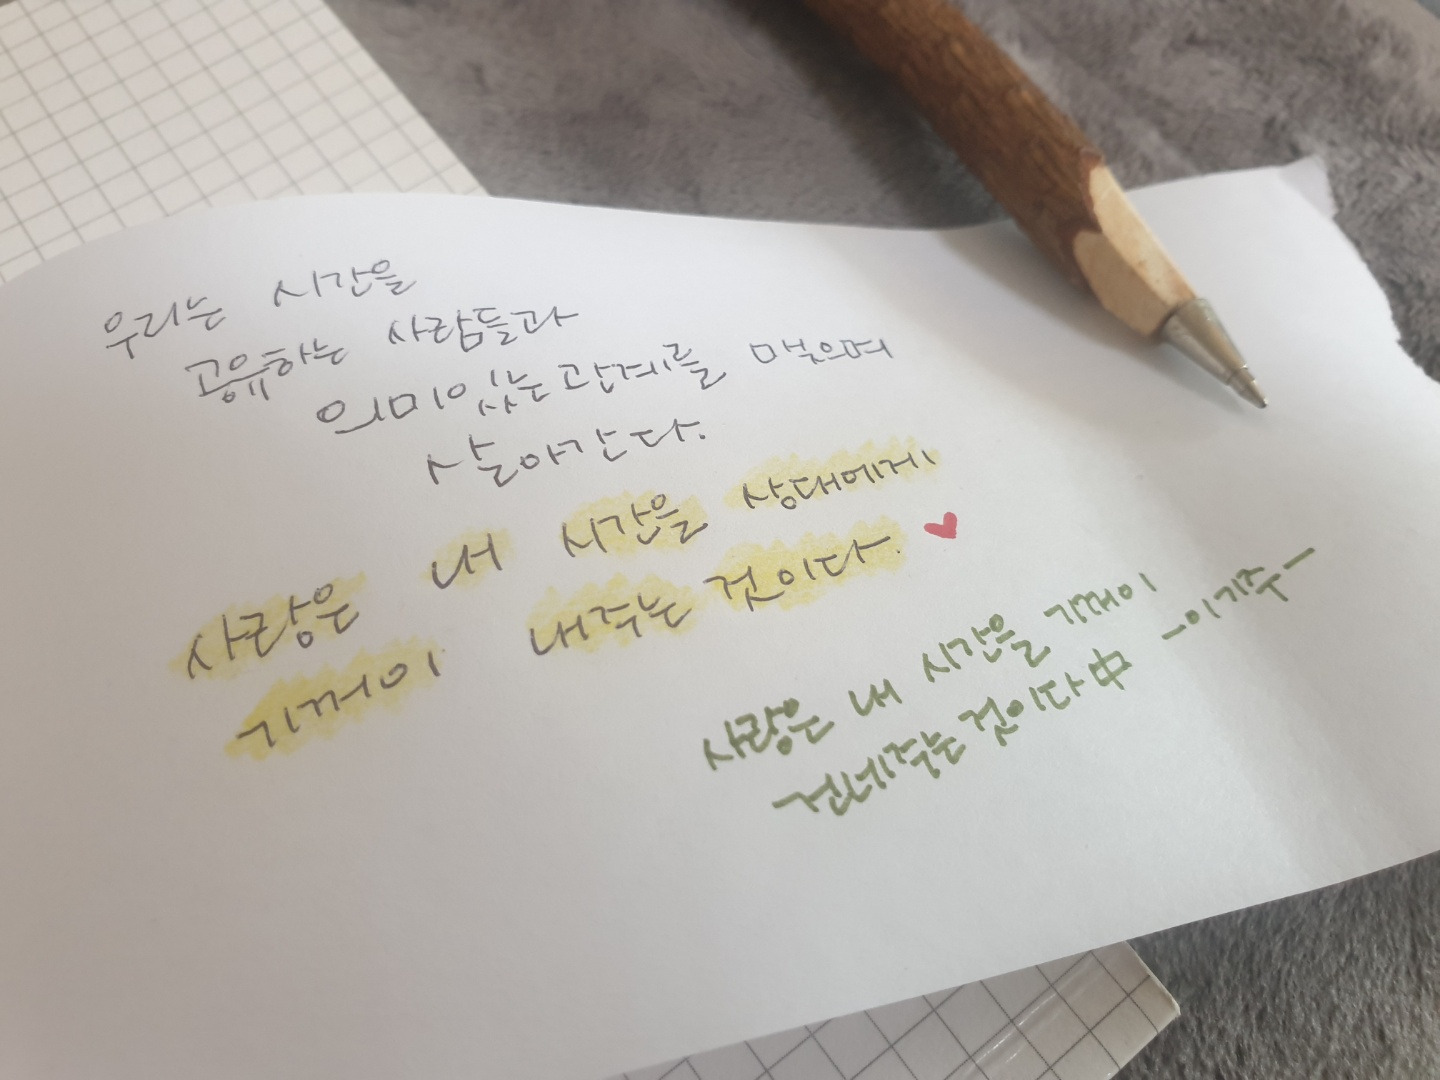 우리는 시간을
공유하는 사람들과
의미있는 관계를 맺으며
살아간다.
사랑은 내 시간을 상대에게
기꺼이 내주는 것이다. ♥
사랑은 내 시간을 기꺼이
건네주는 것이다 中 -이기주-